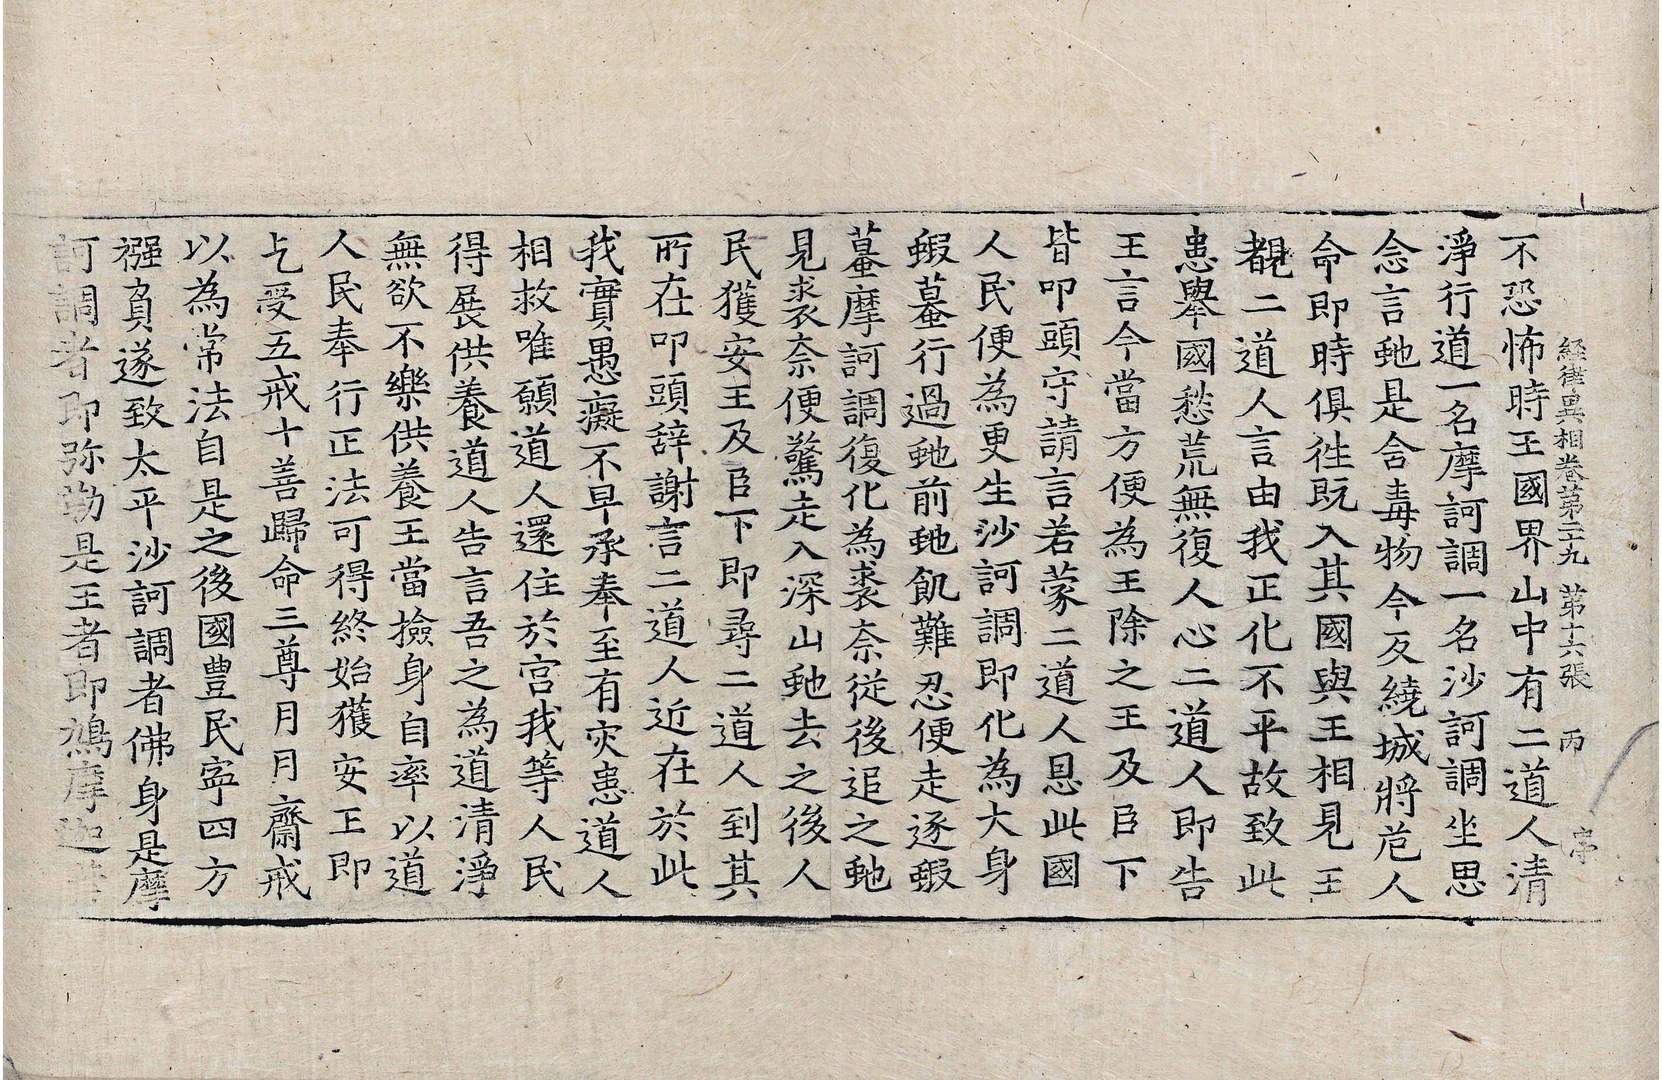 経律異相卷第二十九 第十六張 丙
不恐怖時王國界山中有二道人清
淨行道一名摩訶調一名沙訶調坐思
念言虵是含毒物今反繞城將危人
命即時俱徃既入其國與王相見王
覩二道人言由我正化不平故致此
患舉國愁荒無復人心二道人即告
王言今當方便為王除之王及臣下
皆叩頭守請言若蒙二道人恩此國
人民便為更生沙訶調即化為大身
蝦蟇行過虵前虵飢難忍便走逐蝦
蟇摩訶調復化為裘奈従後追之虵
見裘奈便驚走入深山虵去之後人
民獲安王及臣下即尋二道人到其
所在叩頭辝謝言二道人近在於此
我實愚癡不早承奉至有灾患道人
相救唯願道人還住於宮我等人民
得展供養道人告言吾之為道清淨
無欲不樂供養王當撿身自率以道
人民奉行正法可得終始獲安王即
乞受五戒十善歸命三尊月月齋戒
以為常法自是之後國豊民寜四方
襁負遂致太平沙訶調者佛身是摩
訶調者即弥勒是王者即鳩摩迦